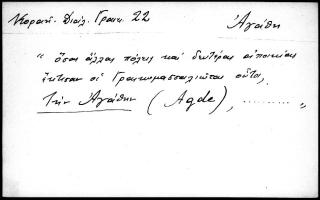 Νεοραν. Διαλ. Γραικ. 22 Ἀγάθη
“ ὅσαι ἄλλαι πόλεις καὶ δευτέρας ἀποικίας
ἔκτισαν οἱ Γραικομασσαλιῶται οὗτοι,
Τὴν Ἀγάθην ( Agde ), .......... „